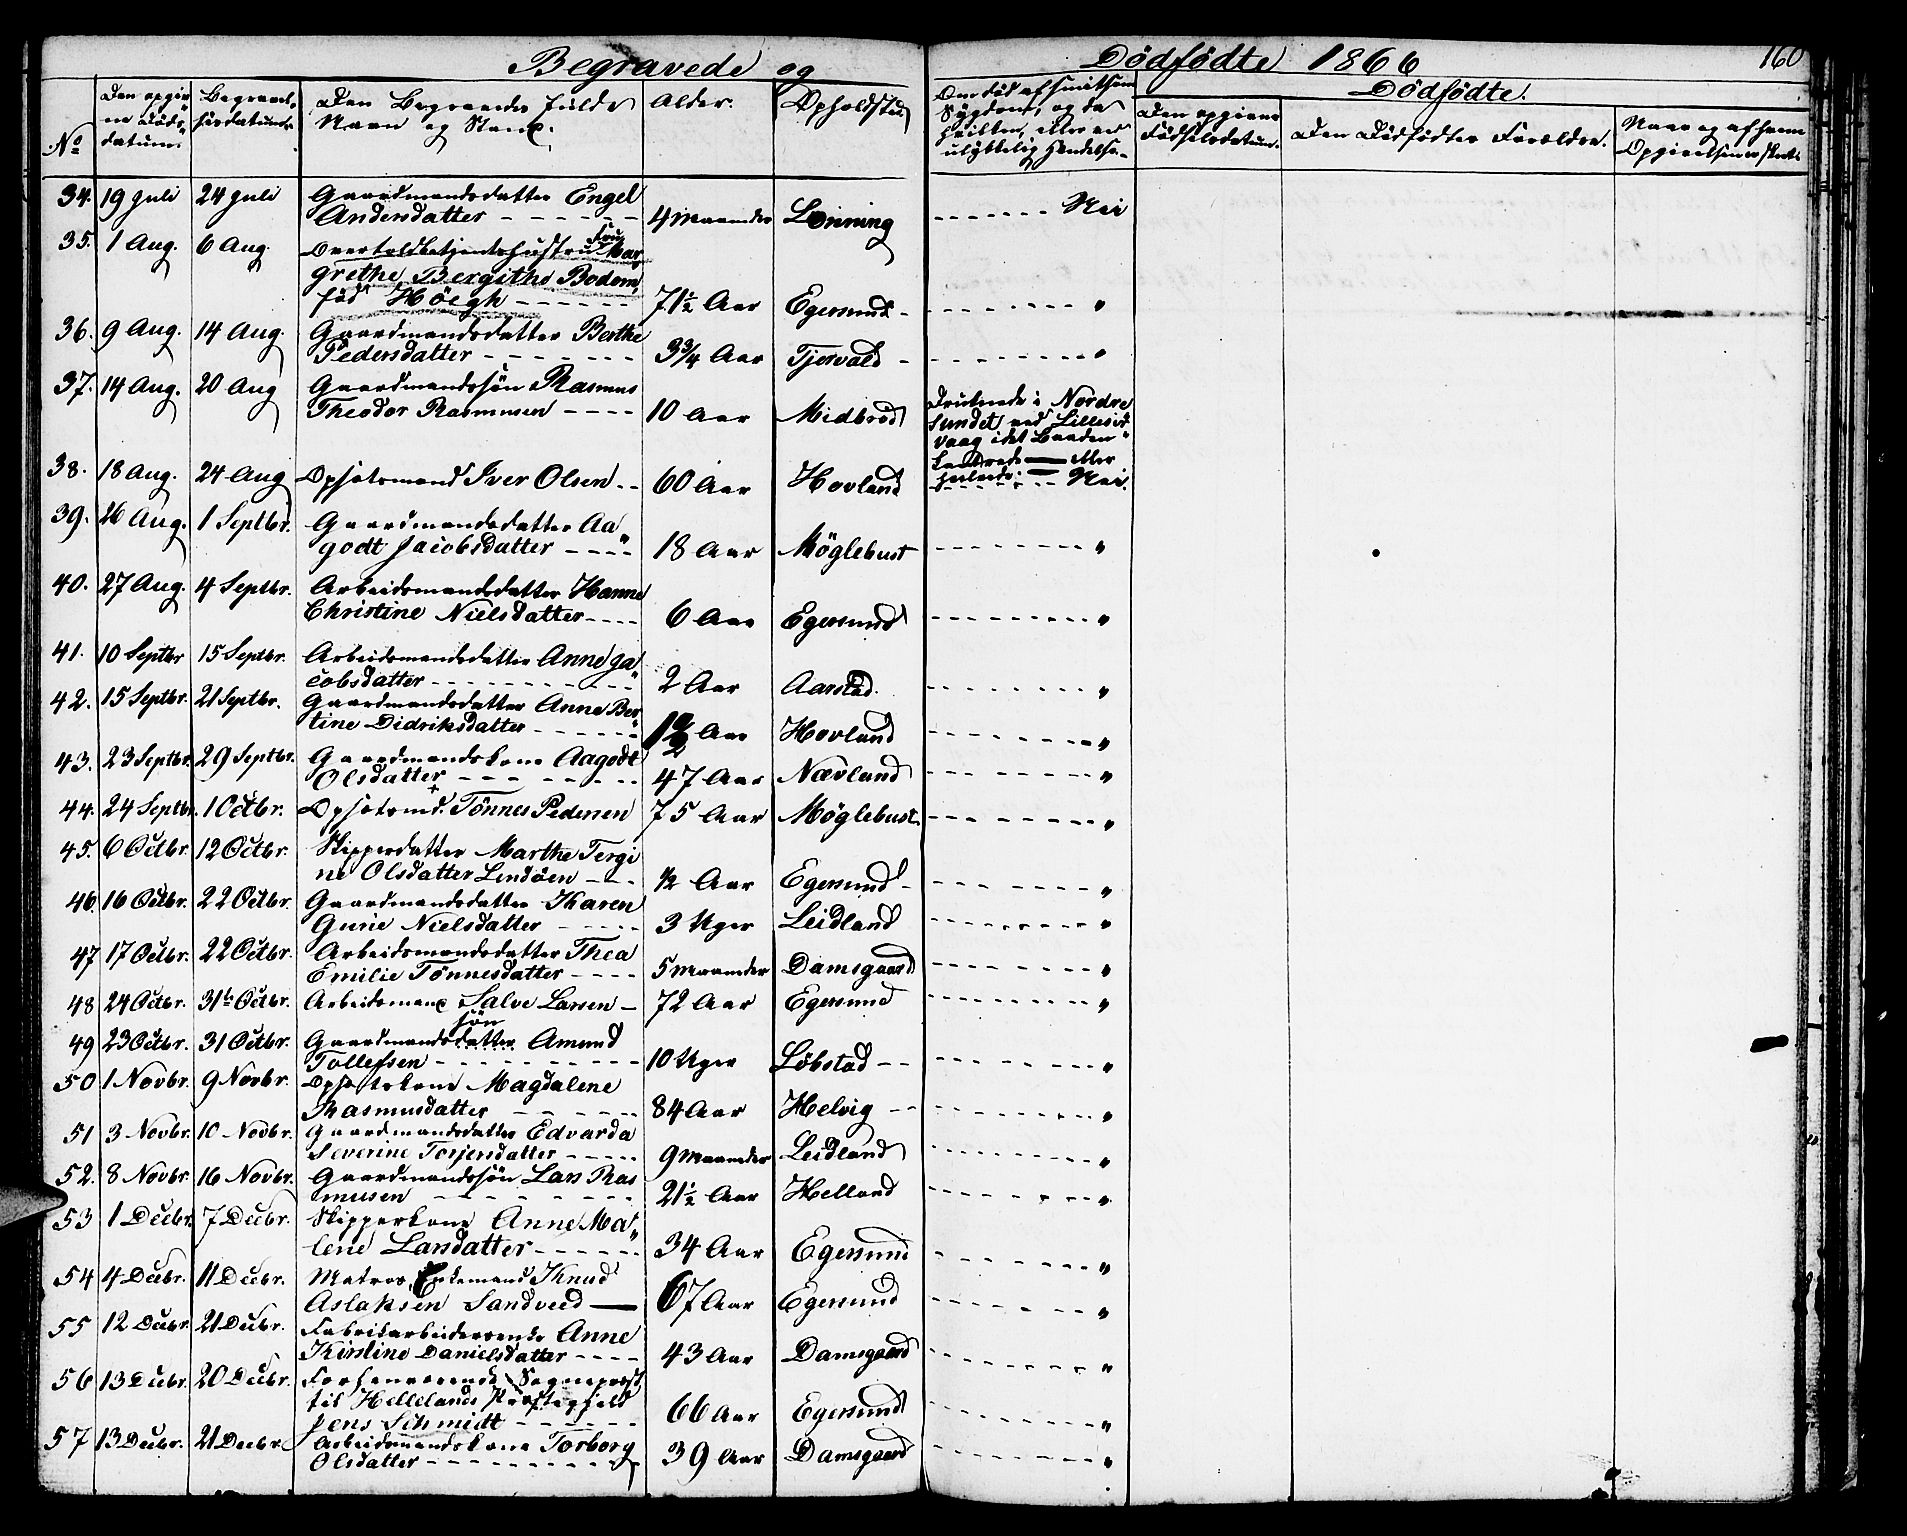 Begravede og Dødfødte 1866
160
No
Den opgivne Dødsdatum.
Begravelsesdatum.
Den Begravedes fulde Navn og Stand.
Alder.
Opholdsted
Om død af smitsom Sygdom, og da hvilken, eller ved ulykkelig Hændelse.
Dødfødte.
Den opgivne Fødselsdatum.
Den Dødfødtes Forældre.
Navn og af hvem Opgivelsen er skeet.
34. 19 Juli 24 Juli Gaardmandsdatter Engel
Andersdatter 4 Maaneder Lonning Nei
35. 1 Aug. 6 Aug. Overtoldbetjentshustru Fru Mar-
grethe Bergithe Bodom,
fød Höegh 71½ Aar Egersund "
36. 9 Aug. 14 Aug. Gaardmandsdatter Berthe
Pedersdatter 3¾ Aar Tjorvald "
37. 14 Aug. 20 Aug Gaardmandssön Rasmus
Theodor Rasmussen 10 Aar Midbrød Druknede i Nordre
Sundet ved Lillesis
vaag idet Baaden
kantrede eller
38. 18 Aug. 24 Aug Opsatsmand Iver Olsen 60 Aar Hovland Nei.
39. 26 Aug. 1 Septbr. Gaardmandsdatter Aa-
godt Jacobsdatter 18 Aar Möglebust "
40. 27 Aug. 4 Septbr. Arbeidsmandsdatter Hanne
Christine Nielsdatter 6 Aar Egersund "
41. 10 Septbr 15 Septbr. Arbeidsmandsdatter Anne Ja-
cobsdatter 2 Aar Aarstad. "
42. 15 Septbr. 21 Septbr. Gaardmandsdatter Anne Ber-
tine Didriksdatter Aar Hovland "
43. 23 Septbr. 29 Septbr. Gaardmandskone Aagodt
Olsdatter 47 Aar Nævland "
44. 24 Septbr. 1 Octbr. Opsatsmd. Tönnes Pedersen 75 Aar Möglebust "
45. 6 Octbr. 12 Octbr. Skippersdatter Marthe Tergi
ne Olsdatter Lendöen ½ Aar Egersund "
46. 16 Octbr. 22 Octbr. Gaardmandsdatter Karen
Gurie Nielsdatter 3 Uger Leidland "
47 17 Octbr. 22 Octbr. Arbeidsmandsdatter Thea
Emilie Tönnesdatter 5 Maaneder Damsgaard "
48 24 Octbr. 31te Octbr. Arbeidsmand Salve Larsen 72 Aar Egersund "
49 23 Octbr. 31 Octbr. Gaardmandsdatter sön Amund
Tollefsen 10 Uger Löbstad "
50 1 Novbr. 9 Novbr. Opsatskone Magdalene
Rasmusdatter 84 Aar Helvig "
51 3 Novbr. 10 Novbr. Gaardmandsdatter Edvarda
Severine Torjersdatter 9 Maaneder Leidland "
52. 8 Novbr. 16 Novbr. Gaardmandssön Lars Ras
mussen 21½ Aar Helland "
53 1 Decbr. 7 Decbr. Skipperkone Anne Ma-
lene Larsdatter 34 Aar Egersund "
54 4 Decbr. 11 Decbr. Matros, Enkemand Knud
Aslaksen Sandved 67 Aar Egersund "
55 12 Decbr. 21 Decbr. Fabrikarbeiderenke Anne
Kirstine Danielsdatter 43 Aar Damsgaard "
56 13 Decbr. 20 Decbr. Forhenværende Sognepræst
til Hellelands Præstegjeld
Jens Schmidt 66 Aar Egersund "
57 13 Decbr. 21 Decbr. Arbeidsmandskone Torborg
Olsdatter 39 Aar Damsgaard "